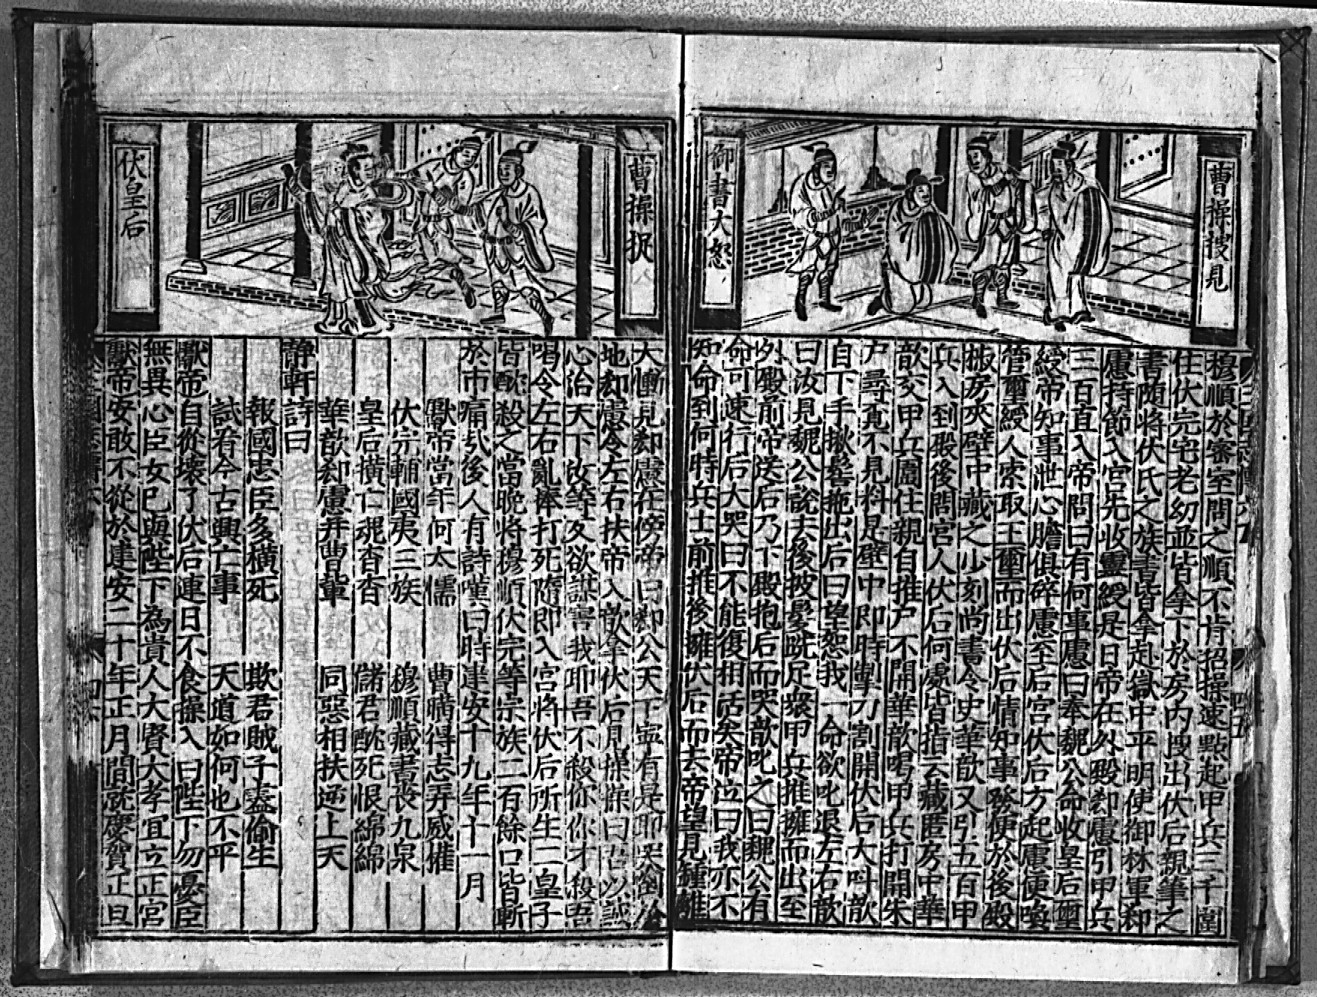 曹操搜見
御書大怒
穆順於密室問之順不肯招操連點起甲兵三千圍
住伏完宅老幼並皆拿下於房內搜出伏后親筆之
書隨將伏氏之族書皆拿赴獄中平明使御林軍郗
慮持節入宮先收璽綬是日帝在外殿郗慮引甲兵
三百直入帝問曰有何事慮曰奉魏公命收皇后璽
綬帝知事泄心膽俱碎慮至后宮伏后方起慮便喚
管璽綬人索取玉璽而出伏后情知事發便於後殿
椒房夾壁中藏之少刻尚書令史華歆又引五百甲
兵入到殿後問宮人伏后何處皆指云藏匿房中華
歆交甲兵圍住親自推戶不開華歆喝甲兵打開朱
戶尋覓不見料是壁中即時掣刀割開伏后大叫歆
自下手揪髻拖出后曰望恕我一命歆叱退左右歆
曰汝見魏公說去後披髮跣足衆甲兵推擁而出至
外殿前帝送后乃下殿抱后而哭歆叱之曰魏公有
命可速行后大哭曰不能復相活矣帝泣曰我亦不
知命到何時兵士前推後擁伏后而去帝望見鍾錐
曹操捉
伏皇后
大慟見郗慮在傍帝曰郗公天下寧有是耶哭倒於
地郗慮令左右扶帝入歆拿伏后見操操曰吾以誠
心治天下汝等反欲謀害我耶吾不殺你你才殺吾
喝令左右亂棒打死隨即入宮將伏后所生二皇子
皆酖殺之當晚將穆順伏完等宗族二百餘口皆斬
於市痛哉後人有詩嘆曰時建安十九年十一月
獻帝當年何太懦 曹瞞得志弄威權
伏完輔國夷三族 穆順藏書喪九泉
皇后橫亡魂杳杳 儲君酖死恨綿綿
華歆郗慮并曹輩 同惡相扶逆上天
靜軒詩曰
報國忠臣多橫死 欺君賊子盡偷生
試看今古興亡事 天道如何也不平
獻帝自從壞了伏后連日不食操入曰陛下勿憂臣
無異心臣女已與陛下為貴人大賢大孝宜立正宮
獻帝安敢不從於建安二十年正月間就慶賀正旦